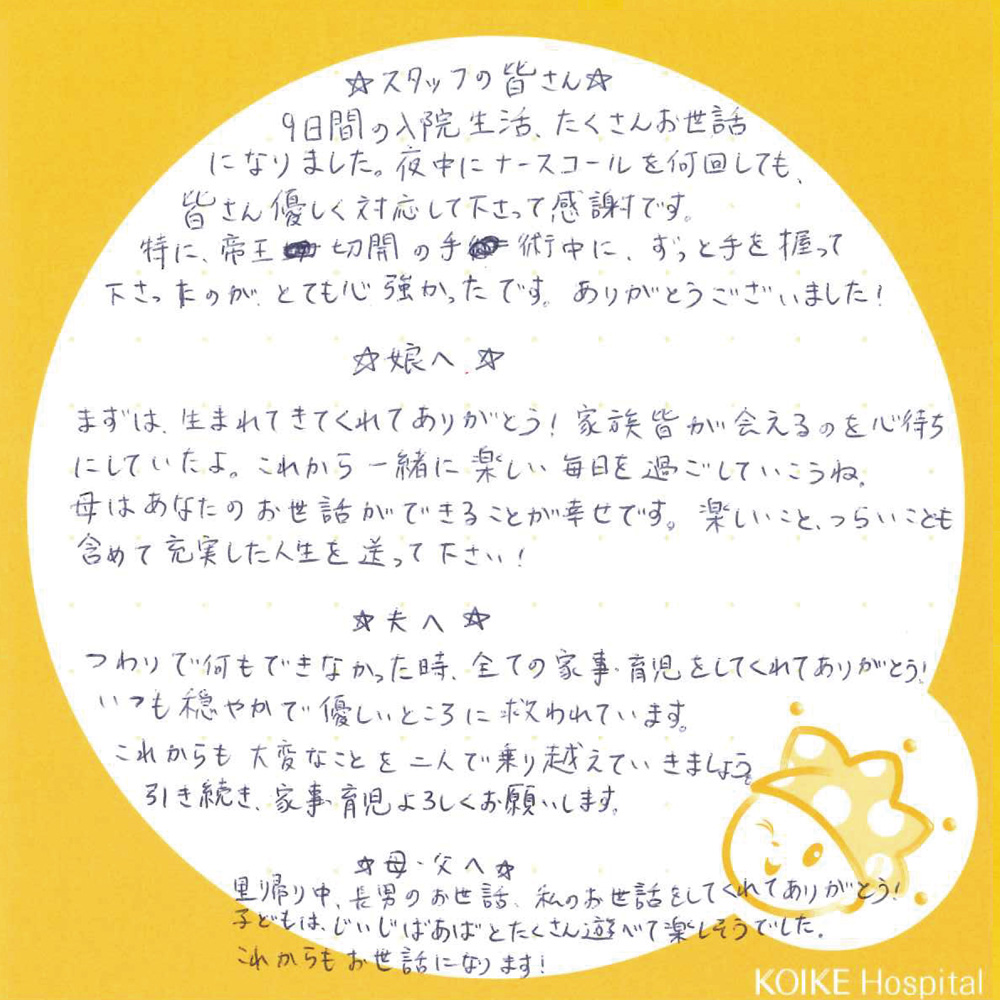 ☆スタッフの皆さん☆
9日間の入院生活、たくさんお世話
になりました。夜中にナースコールを何回しても、
皆さん優しく対応して下さって感謝です。
特に、帝王切開の手術中に、ずっと手を握って
下さったのが、とても心強かったです。ありがとうございました!
☆娘へ☆
まずは、生まれてきてくれてありがとう!家族皆が会えるのを心待ち
にしていたよ。これから一緒に楽しい毎日を過ごしていこうね。
母はあなたのお世話ができることが幸せです。楽しいこと、つらいことも
含めて充実した人生を送って下さい!
☆夫へ☆
つわりで何もできなかった時、全ての家事・育児をしてくれてありがとう!
いつも穏やかで優しいところに救われています。
これからも大変なことを二人で乗り越えていきましょう。
引き続き、家事・育児よろしくお願いします。
☆母・父へ☆
里帰り中、長男のお世話、私のお世話をしてくれてありがとう!
子どもは、じいじばあばとたくさん遊べて楽しそうでした。
これからもお世話になります!
KOIKE Hospital